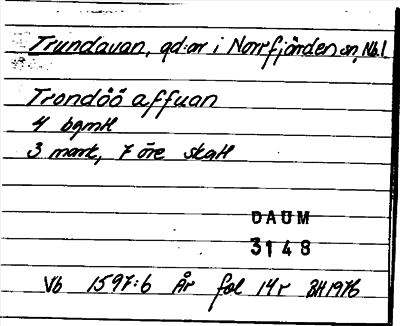 Trundavan, gd:ar i Norrfjärden sn, Nb.l
Trondöö affuan
4 bgmH
3 mark, 7 öre skatt
DAUM
3148
Vb 1597:6 År fol 14r BH1976